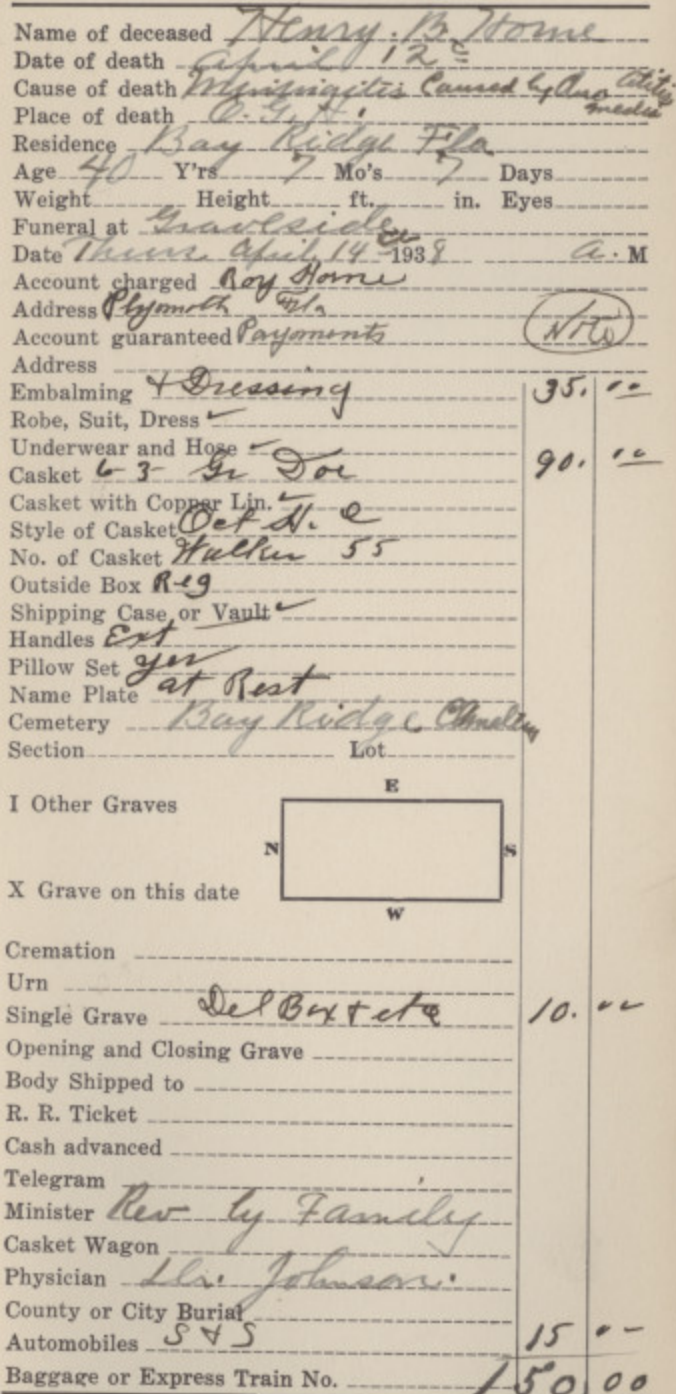 Name of deceased Henry. B. Horne
Date of death April 12
Cause of death Meningitis Caused by otitis
media
Place of death O. G. H.
Residence Bay Ridge Fla
Age 40 Y'rs 7 Mo's 7 Days
Weight Height ft. in. Eyes
Funeral at Graveside
Date Thurs April 14 1938 a. M
Account charged Roy Horne
Address Plymouth Fla
Account guaranteed Payments (Note)
Address
Embalming & Dressing 35. 00
Robe, Suit, Dress ✓
Underwear and Hose ✓
Casket 6-3 Gr Doe 90. 00
Casket with Copper Lin. ✓
Style of Casket Oct
No. of Casket Walker 55
Outside Box Reg
Shipping Case or Vault ✓
Handles Ext
Pillow Set yes
Name Plate at Rest
Cemetery Bay Ridge
Section Lot
E
I Other Graves
N S
X Grave on this date
W
Cremation
Urn
Single Grave Del Box & etc 10. 00
Opening and Closing Grave
Body Shipped to
R. R. Ticket
Cash advanced
Telegram
Minister Rev by Family
Casket Wagon
Physician Dr. Johnson.
County or City Burial
Automobiles S & S 15 00
Baggage or Express Train No. 150 00